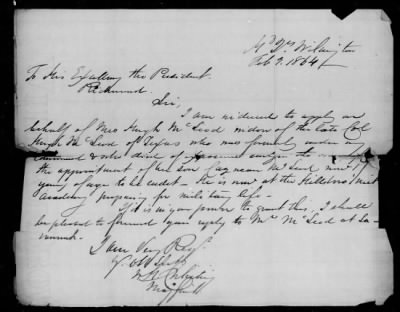 Hd Qrs Wilmington
Feb 9. 1864
To His Excellency the President.
Richmond.
Sir,
I am induced to apply on
behalf of Mrs Hugh McLeod widow of the late Col
Hugh McLeod of Texas who was formerly under my
command & who died of
the appointment of her son
years of age to be cadet – He is now at the Hillsboro Mil:
Academy preparing for military life –
If it is in your power to grant this, I shall
be pleased to forward your reply to Mrs McLeod at Sa-
vannah.
I am Very Resp
Yr Obt Servt
W.H.C. Whiting
Maj Genl